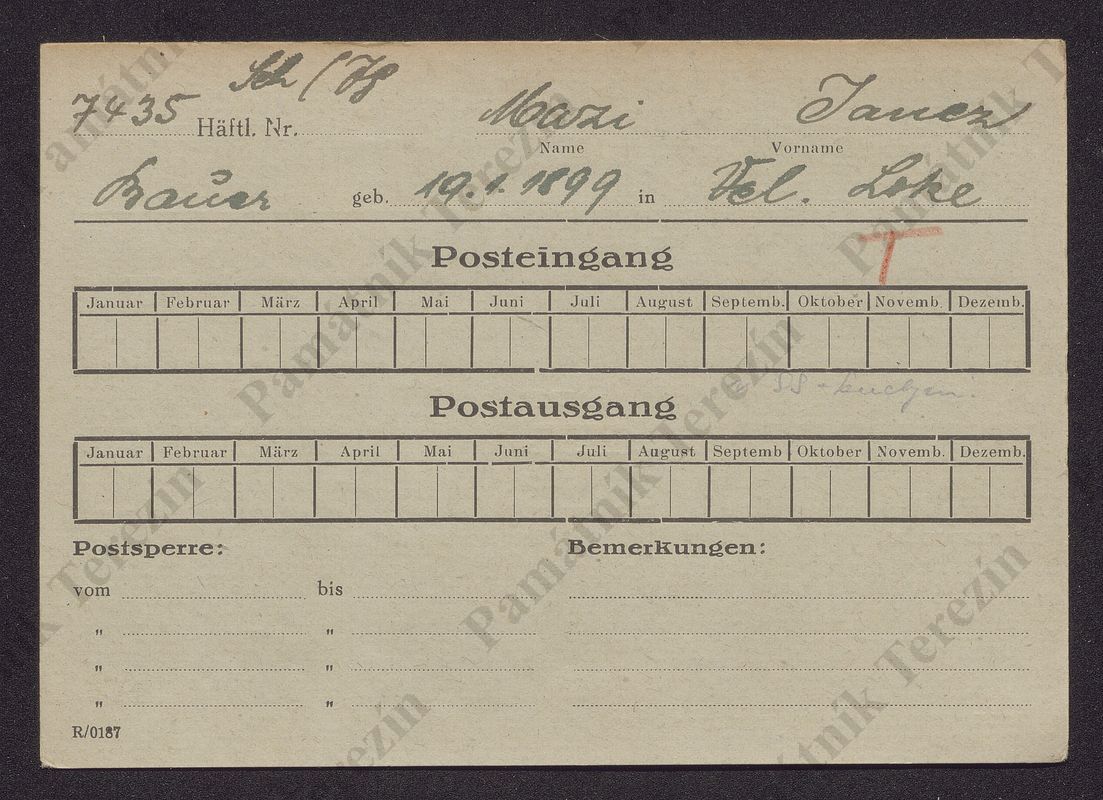 Sch/Jg
7435 Häftl. Nr. Mazi Janez
Name Vorname
Bauer geb. 19.1.1899 in Vel. Loke
Posteingang
T
Januar Februar März April Mai Juni Juli August Septemb. Oktober Novemb. Dezemb.
SS-
Postausgang
Januar Februar März April Mai Juni Juli August Septemb Oktober Novemb. Dezemb.
Postsperre: Bemerkungen:
vom bis
" "
" "
" "
R/0187
Památník Terezín